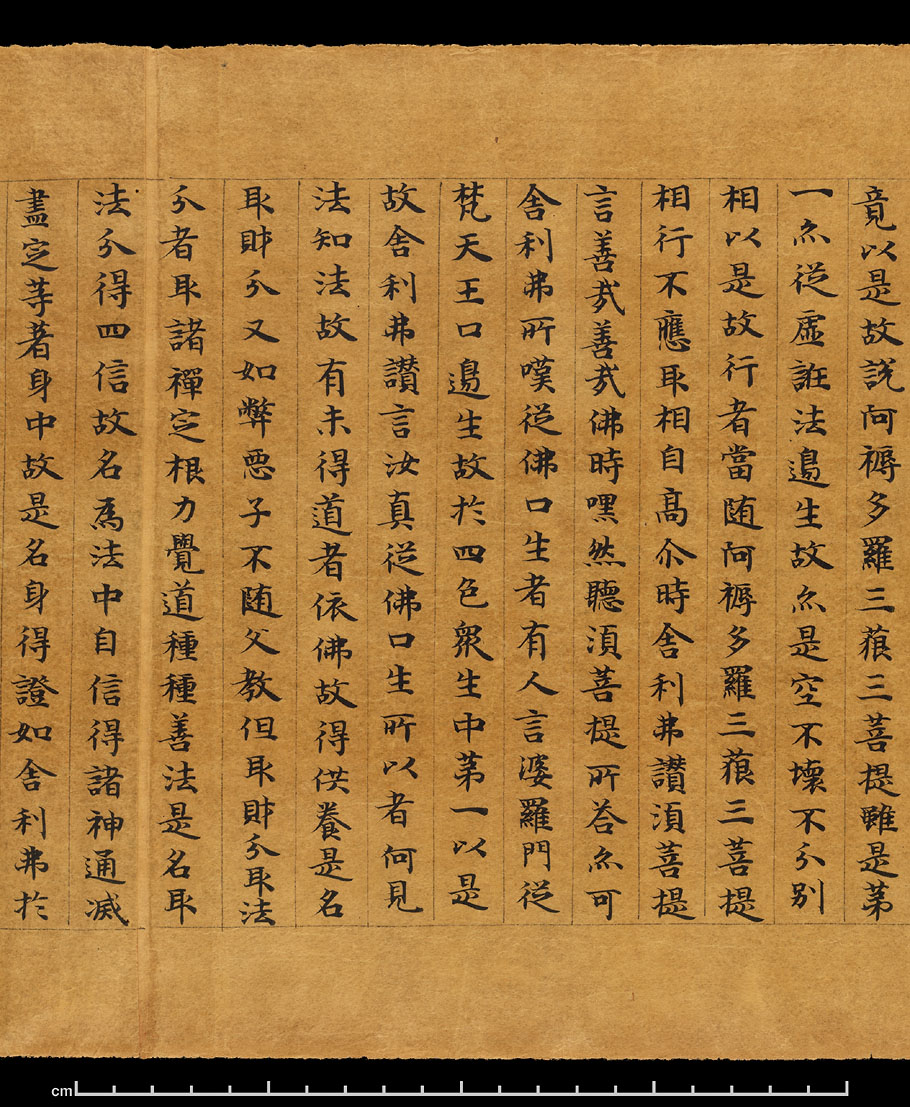 竟以是故説阿褥多羅三藐三菩提雖是苐
一尒従虚誑法邉生故尒是空不壞不分别
相以是故行者當随阿褥多羅三藐三菩提
相行不應取相自髙尒時舎利弗讃湏菩提
言善㢤善㢤佛時嘿然聽湏菩提所荅尒可
舎利弗所嘆従佛口生者有人言婆羅門従
梵天王口邉生故扵四色衆生中苐一以是
故舎利弗讃言汝真従佛口生所以者何見
法知法故有未得道者依佛故得供養是名
取財分又如弊惡子不随父教但取財分取法
分者取諸禪定根力覺道種種善法是名取
法分得四信故名爲法中自信得諸神通滅
盡定䓁著身中故是名身得證如舎利弗扵
cm